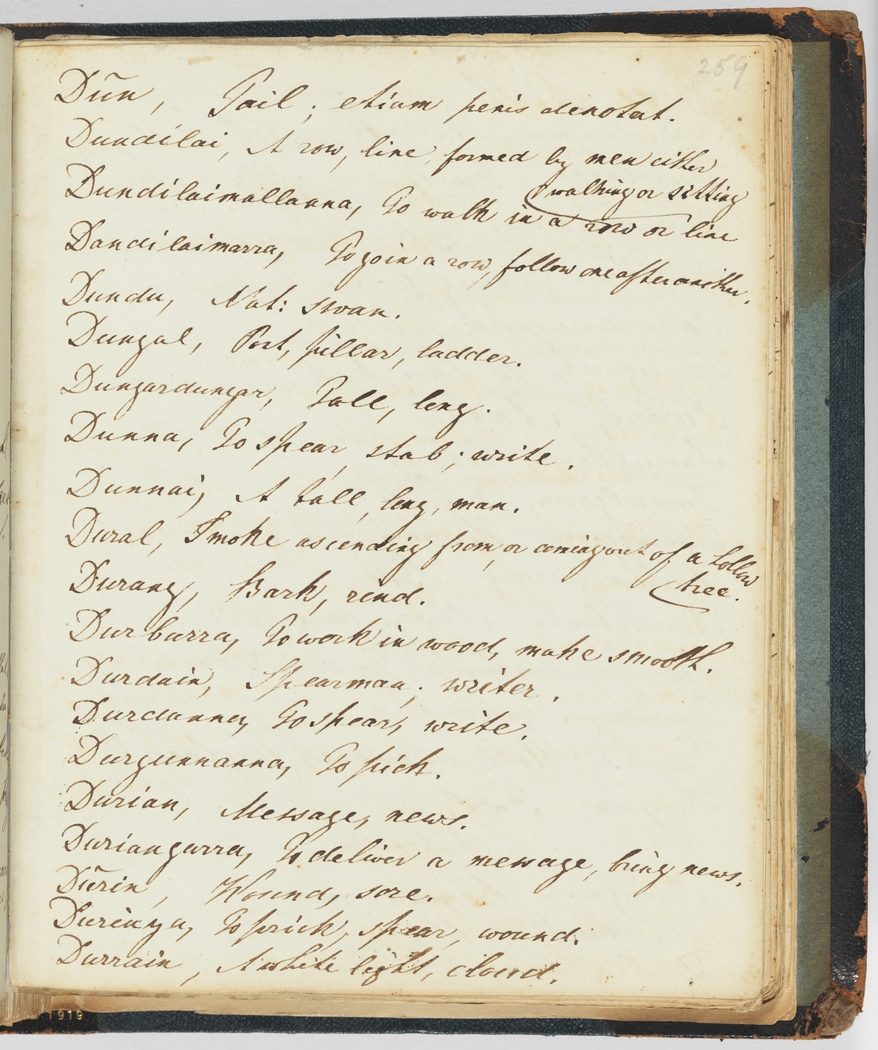 259
Dūn, Tail; etiam penis denotat.
Dundilai, A row, line, formed by men either
walking or sitting
Dundilaimallanna, To walk in a row or line
Dundilaimarra, To join a row, follow one after another.
Dundu, Nat: swan.
Dungal, Post, pillar, ladder.
Dungardungar, Tall, long.
Dunna, To spear, stab; write.
Dunnai, A tall, long, man.
Dural, Smoke ascending from, or coming out of a hollow
tree.
Durang, Bark, rind.
Durbarra, To work in wood, make smooth.
Durdain, Spearman; writer.
Durdanna, To spear, write.
Durgunnanna, To pick.
Durian, Message, news.
Duriangarra, To deliver a message, bring news.
Dūrin, Wound, sore.
Durinya, To prick, spear, wound.
Durrain, A white light, cloud.
1919